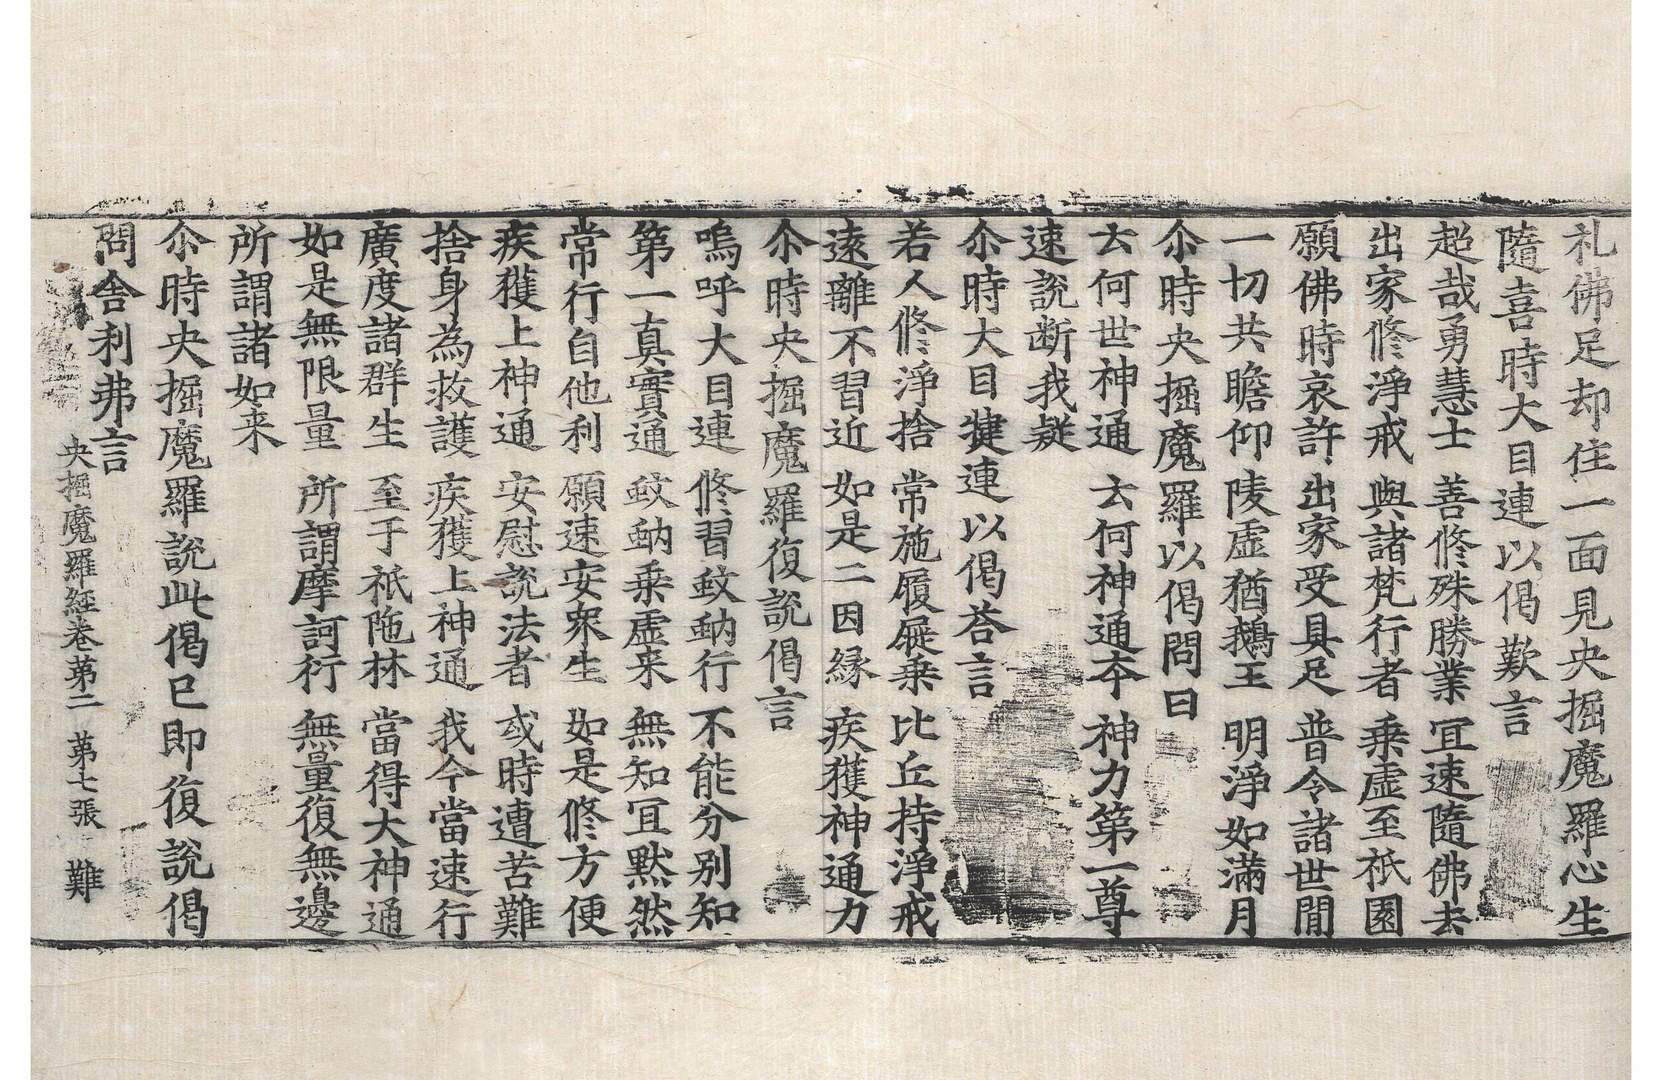 礼佛足却住一面見央掘魔羅心生
隨喜時大目連以偈歎言
超哉勇慧士 善修殊勝業 冝速隨佛去
出家修淨戒 與諸梵行者 乗虛至祇園
願佛時哀許 出家受具足 普令諸世閒
一切共瞻仰 陵虛猶鵝王 明淨如滿月
尒時央掘魔羅以偈問曰
云何世神通 云何神通夲 神力第一尊
速說断我疑
尒時大目犍連以偈荅言
若人修淨捨 常施履屣乗 比丘持淨戒
遠離不習近 如是二因緣 疾獲神通力
尒時央掘魔羅復說偈言
嗚呼大目連 修習蚊蚋行 不能分别知
第一真實通 蚊蚋乗虛来 無知冝默然
常行自他利 願速安衆生 如是修方便
疾獲上神通 安慰說法者 或時遭苦難
捨身為救護 疾獲上神通 我今當速行
廣度諸群生 至于祇陁林 當得大神通
如是無限量 所謂摩訶衍 無量復無邊
所謂諸如来
尒時央掘魔羅說此偈已即復說偈
問舎利弗言
央掘魔羅經卷苐二 苐七張 難